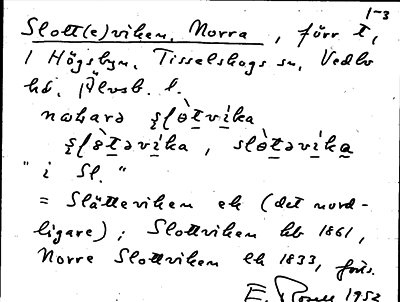 1-3
Slott(e)viken, Norra, förr t,
i Högsbyn, Tisselskogs sn, Vedbo
hd, Älvsb. l.
nɷhard ʂl̯òt̲vi̲ka
ʂl̯òt̲əvi̲ka, slòt̲əvi̲ka̲
"i Sl."
= Slätteviken ek (det nord-
ligare); Slottviken hb 1861,
Norre Slottviken ek 1833, förs.
E. Rosell 1952